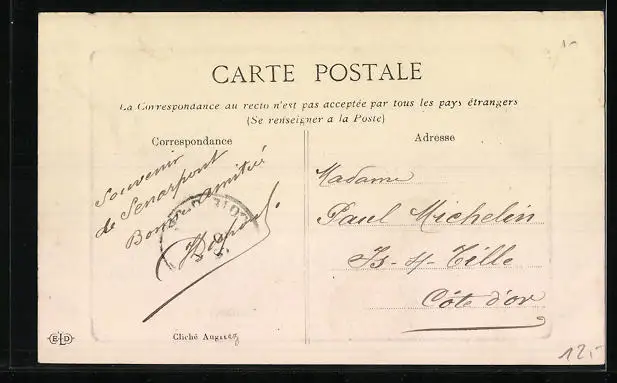 CARTE POSTALE
La Correspondance au recto n'est pas acceptée par tous les pays étrangers
(Se renseigner a la Poste)
Correspondance
Souvenir
de Senarpont
Bonne amitié
Adresse
Madame
Paul Michelin
Is-s/-Tille
Côte d'or
ELD
Cliché
12.-